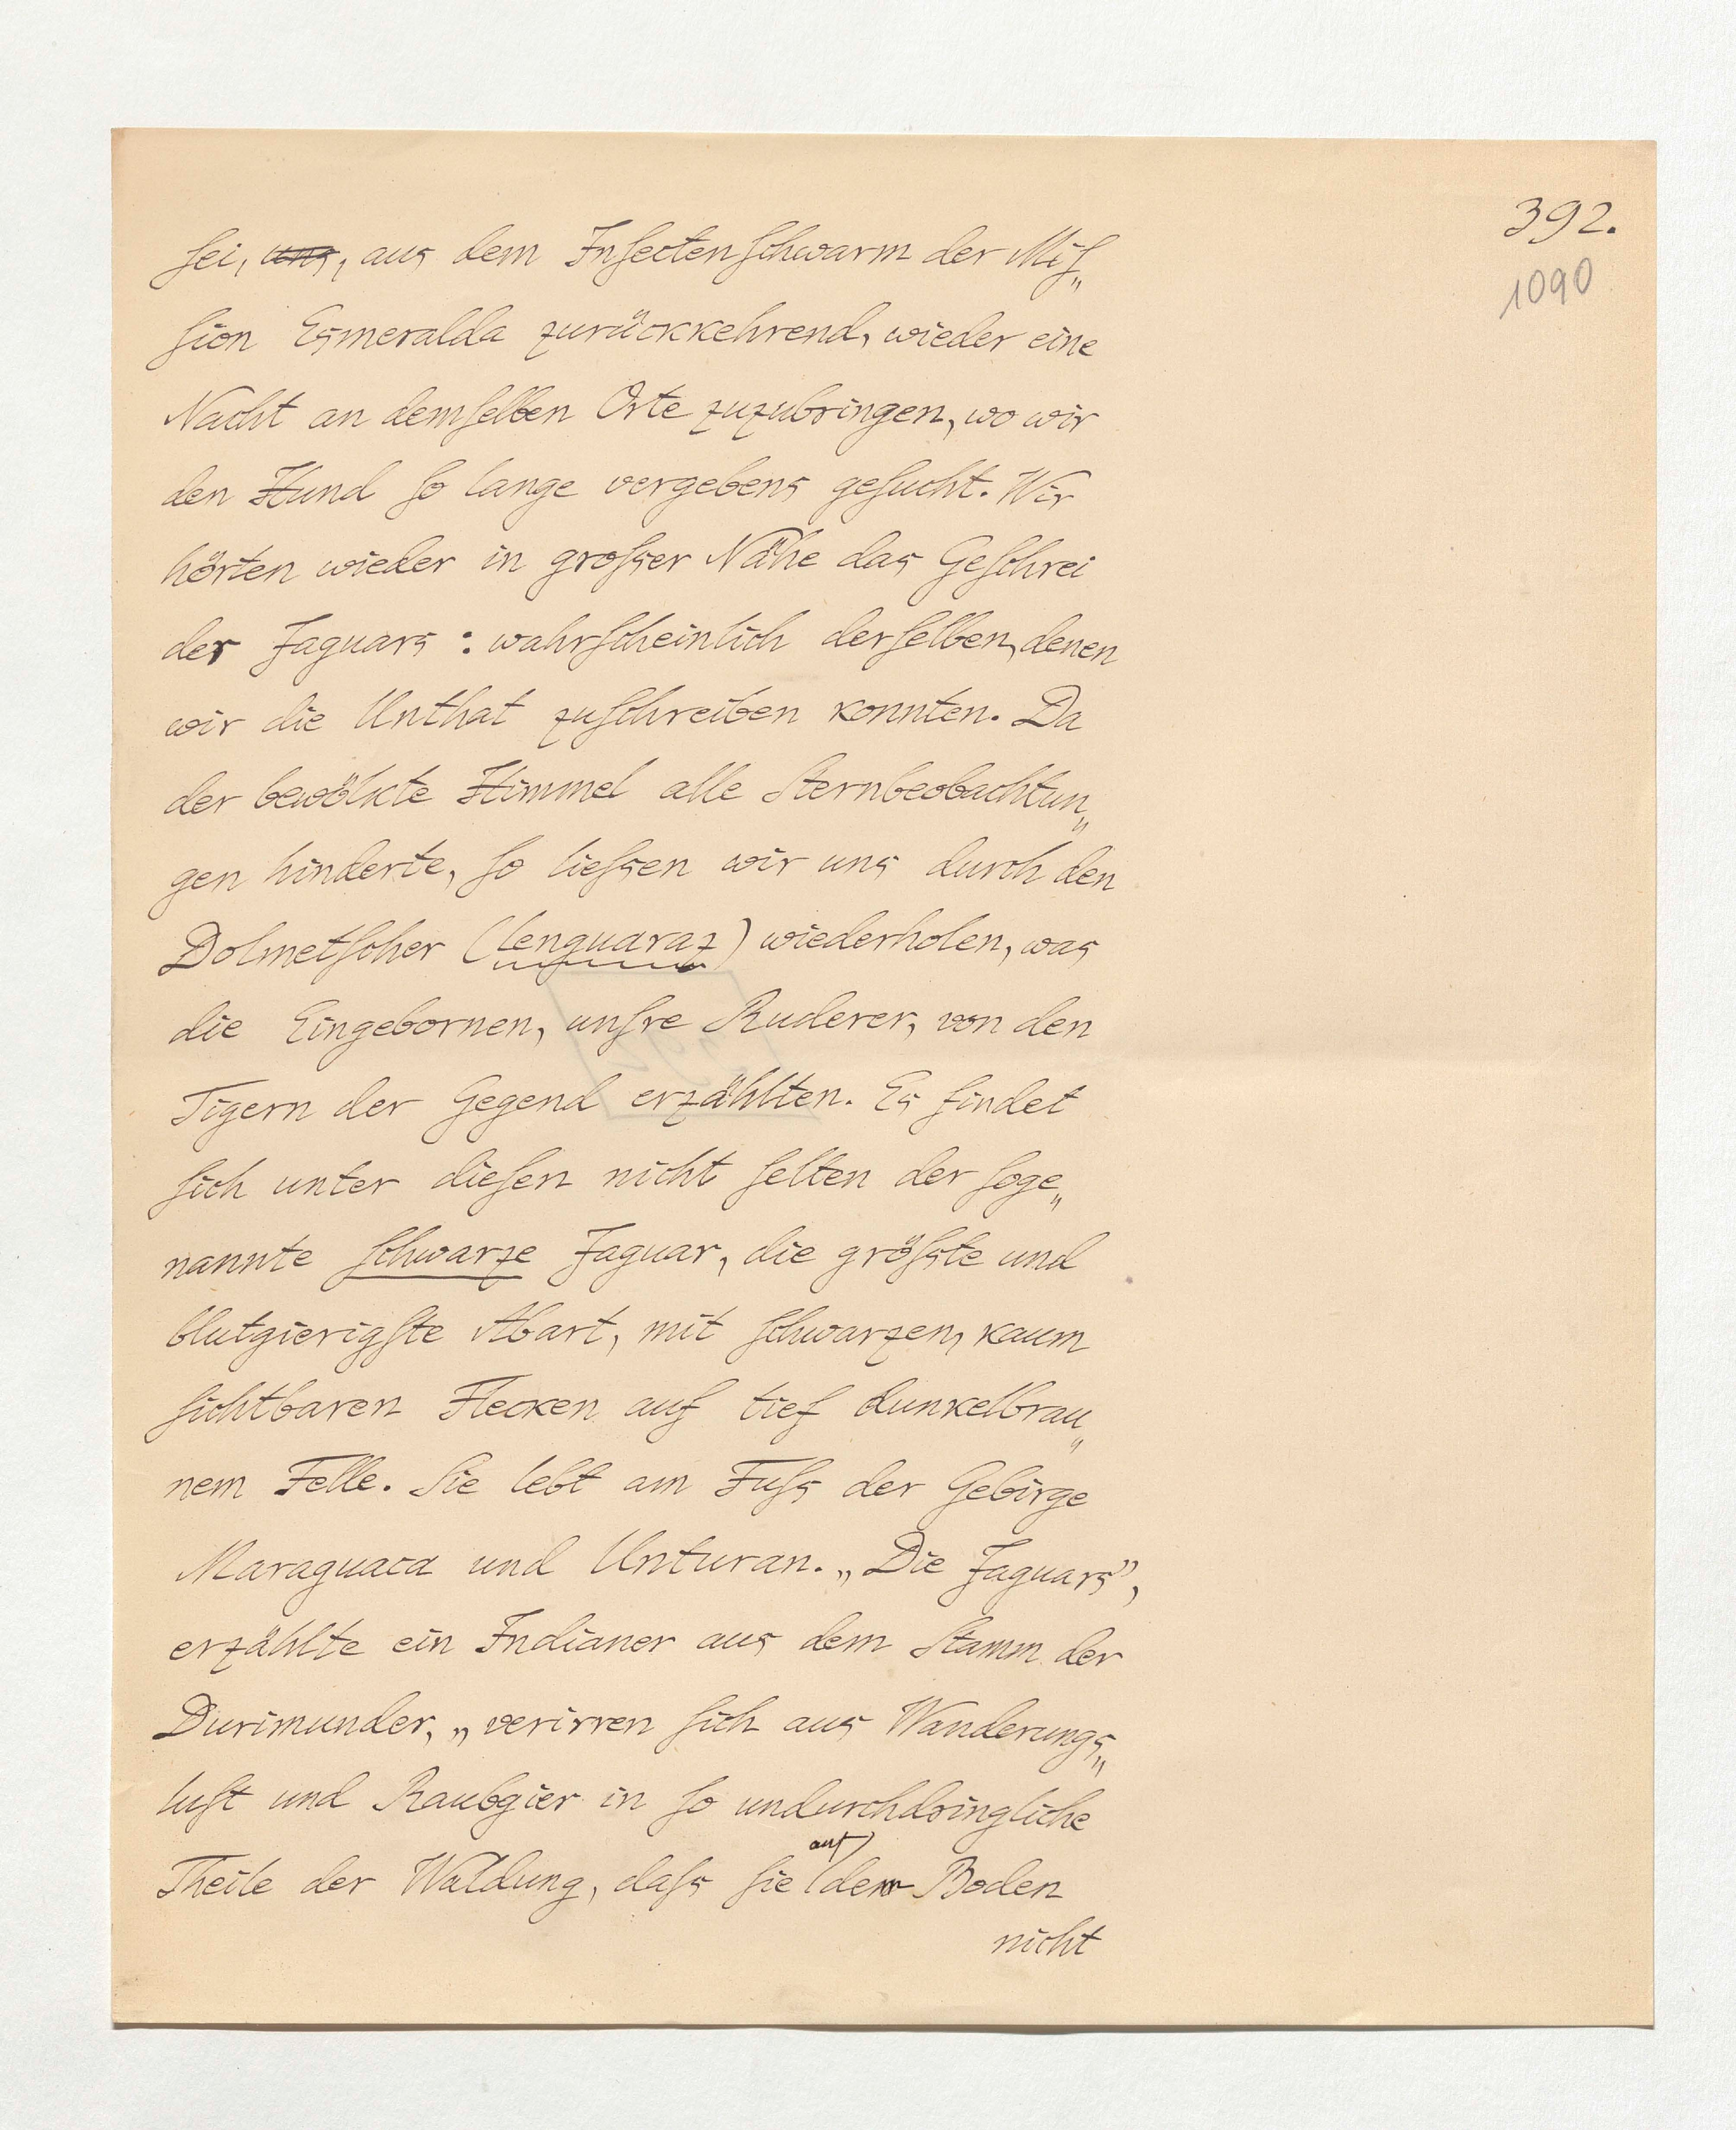 392.
1090
sei, uns, aus dem Insectenschwarm der Mis„
sion Esmeralda zurückkehrend, wieder eine
Nacht an demselben Orte zuzubringen, wo wir
den Hund so lange vergebens gesucht. Wir
hörten wieder in grosser Nähe das Geschrei
der Jaguars: wahrscheinlich derselben, denen
wir die Unthat zuschreiben konnten. Da
der bewölkte Himmel alle Sternbeobachtun„
gen hinderte, so liessen wir uns durch den
Dolmetscher (lenguaraz) wiederholen, was
die Eingebornen, unsre Ruderer, von den
Tigern der Gegend erzählten. Es findet
sich unter diesen nicht selten der soge„
nannte schwarze Jaguar, die grösste und
blutgierigste Abart, mit schwarzen, kaum
sichtbaren Flecken auf tief dunkelbrau„
nem Felle. Sie lebt am Fuss der Gebirge
Maraguaca und Unturan. „Die Jaguars”,
erzählte ein Indianer aus dem Stamm der
Durimunder, „verirren sich aus Wanderungs„
lust und Raubgier in so undurchdringliche
Theile der Waldung, dass sie auf dem Boden
nicht